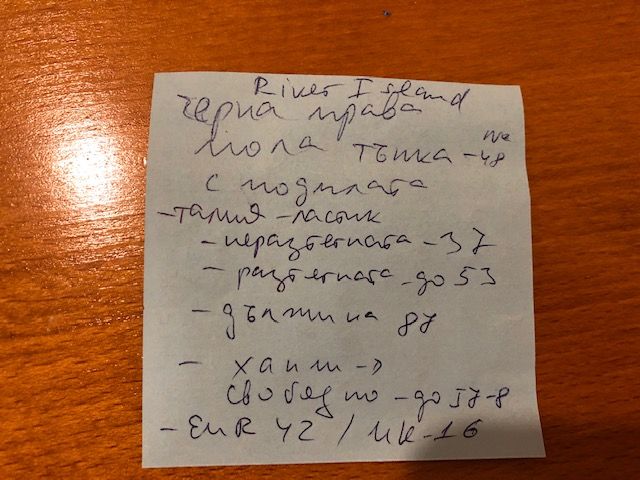 River Island
черна права
пола тънка - 48
с подплата
- талия - ластик
- неразтегната - 37
- разтегната - до 53
- дължина 87
- ханш →
свободно - до 57-8
- EUR 42 / UK - 16